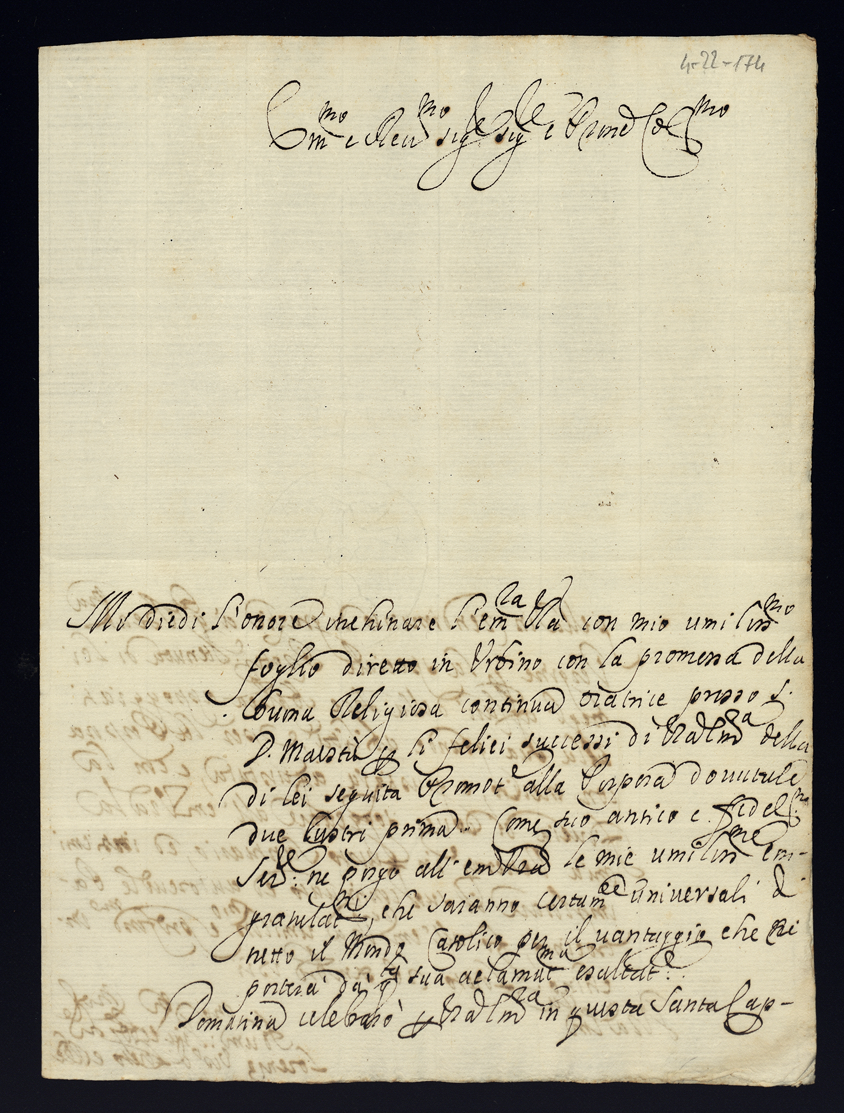 4-22-174
Em.mo e Rev.mo Sig.re Sig.re e Prone Col.mo
Mi diedi l'onore inchinare l'em.za Vra con mio umiliss.mo
foglio diretto in Urbino con la promessa della
buona Religiosa continua oratrice presso S.
D. Maestà p li felici successi di Vra Em.za della
di lei seguita Promot.e alla Porpora dovutale
due lustri prima. Come suo antico e fedel.mo
Ser.re ne porgo all'em. Vra le mie umiliss.me em-
gratulat.ni, che saranno certam.te universali di
tutto il Mondo Catolico per il vantaggio che ri
porterà da sua aclamat.ma esaltat.e.
Domatina celebrarò p Vra Em.za in questa Santa Cap-